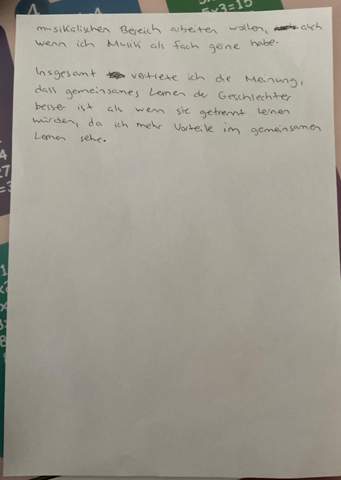 musikalischen Bereich arbeiten wollen, auch
wenn ich Musik als Fach gerne habe.
Insgesamt vertrete ich die Meinung,
dass gemeinsames Lernen der Geschlechter
besser ist als wenn sie getrennt lernen
würden, da ich mehr Vorteile im gemeinsamen
Lernen sehe.
5x3=15